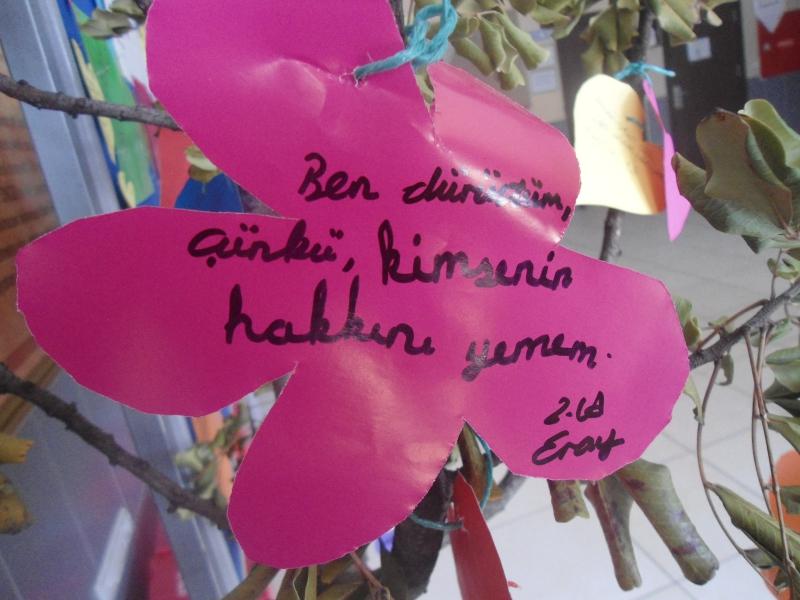 Ben dürüstüm,
Çünkü, kimsenin
hakkını yemem.
Eray